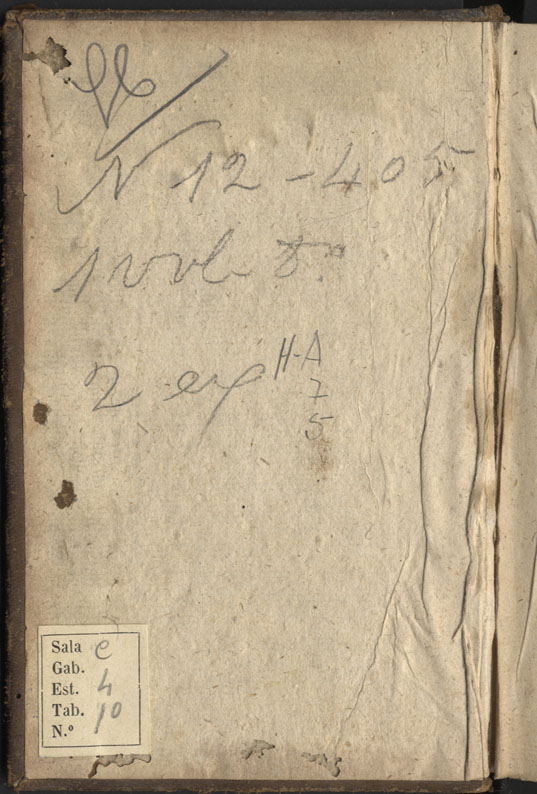 N 12-405
1 vol 8º
2 ex
H-A
7
5
Sala C
Gab.
Est. 4
Tab. 10
N.º